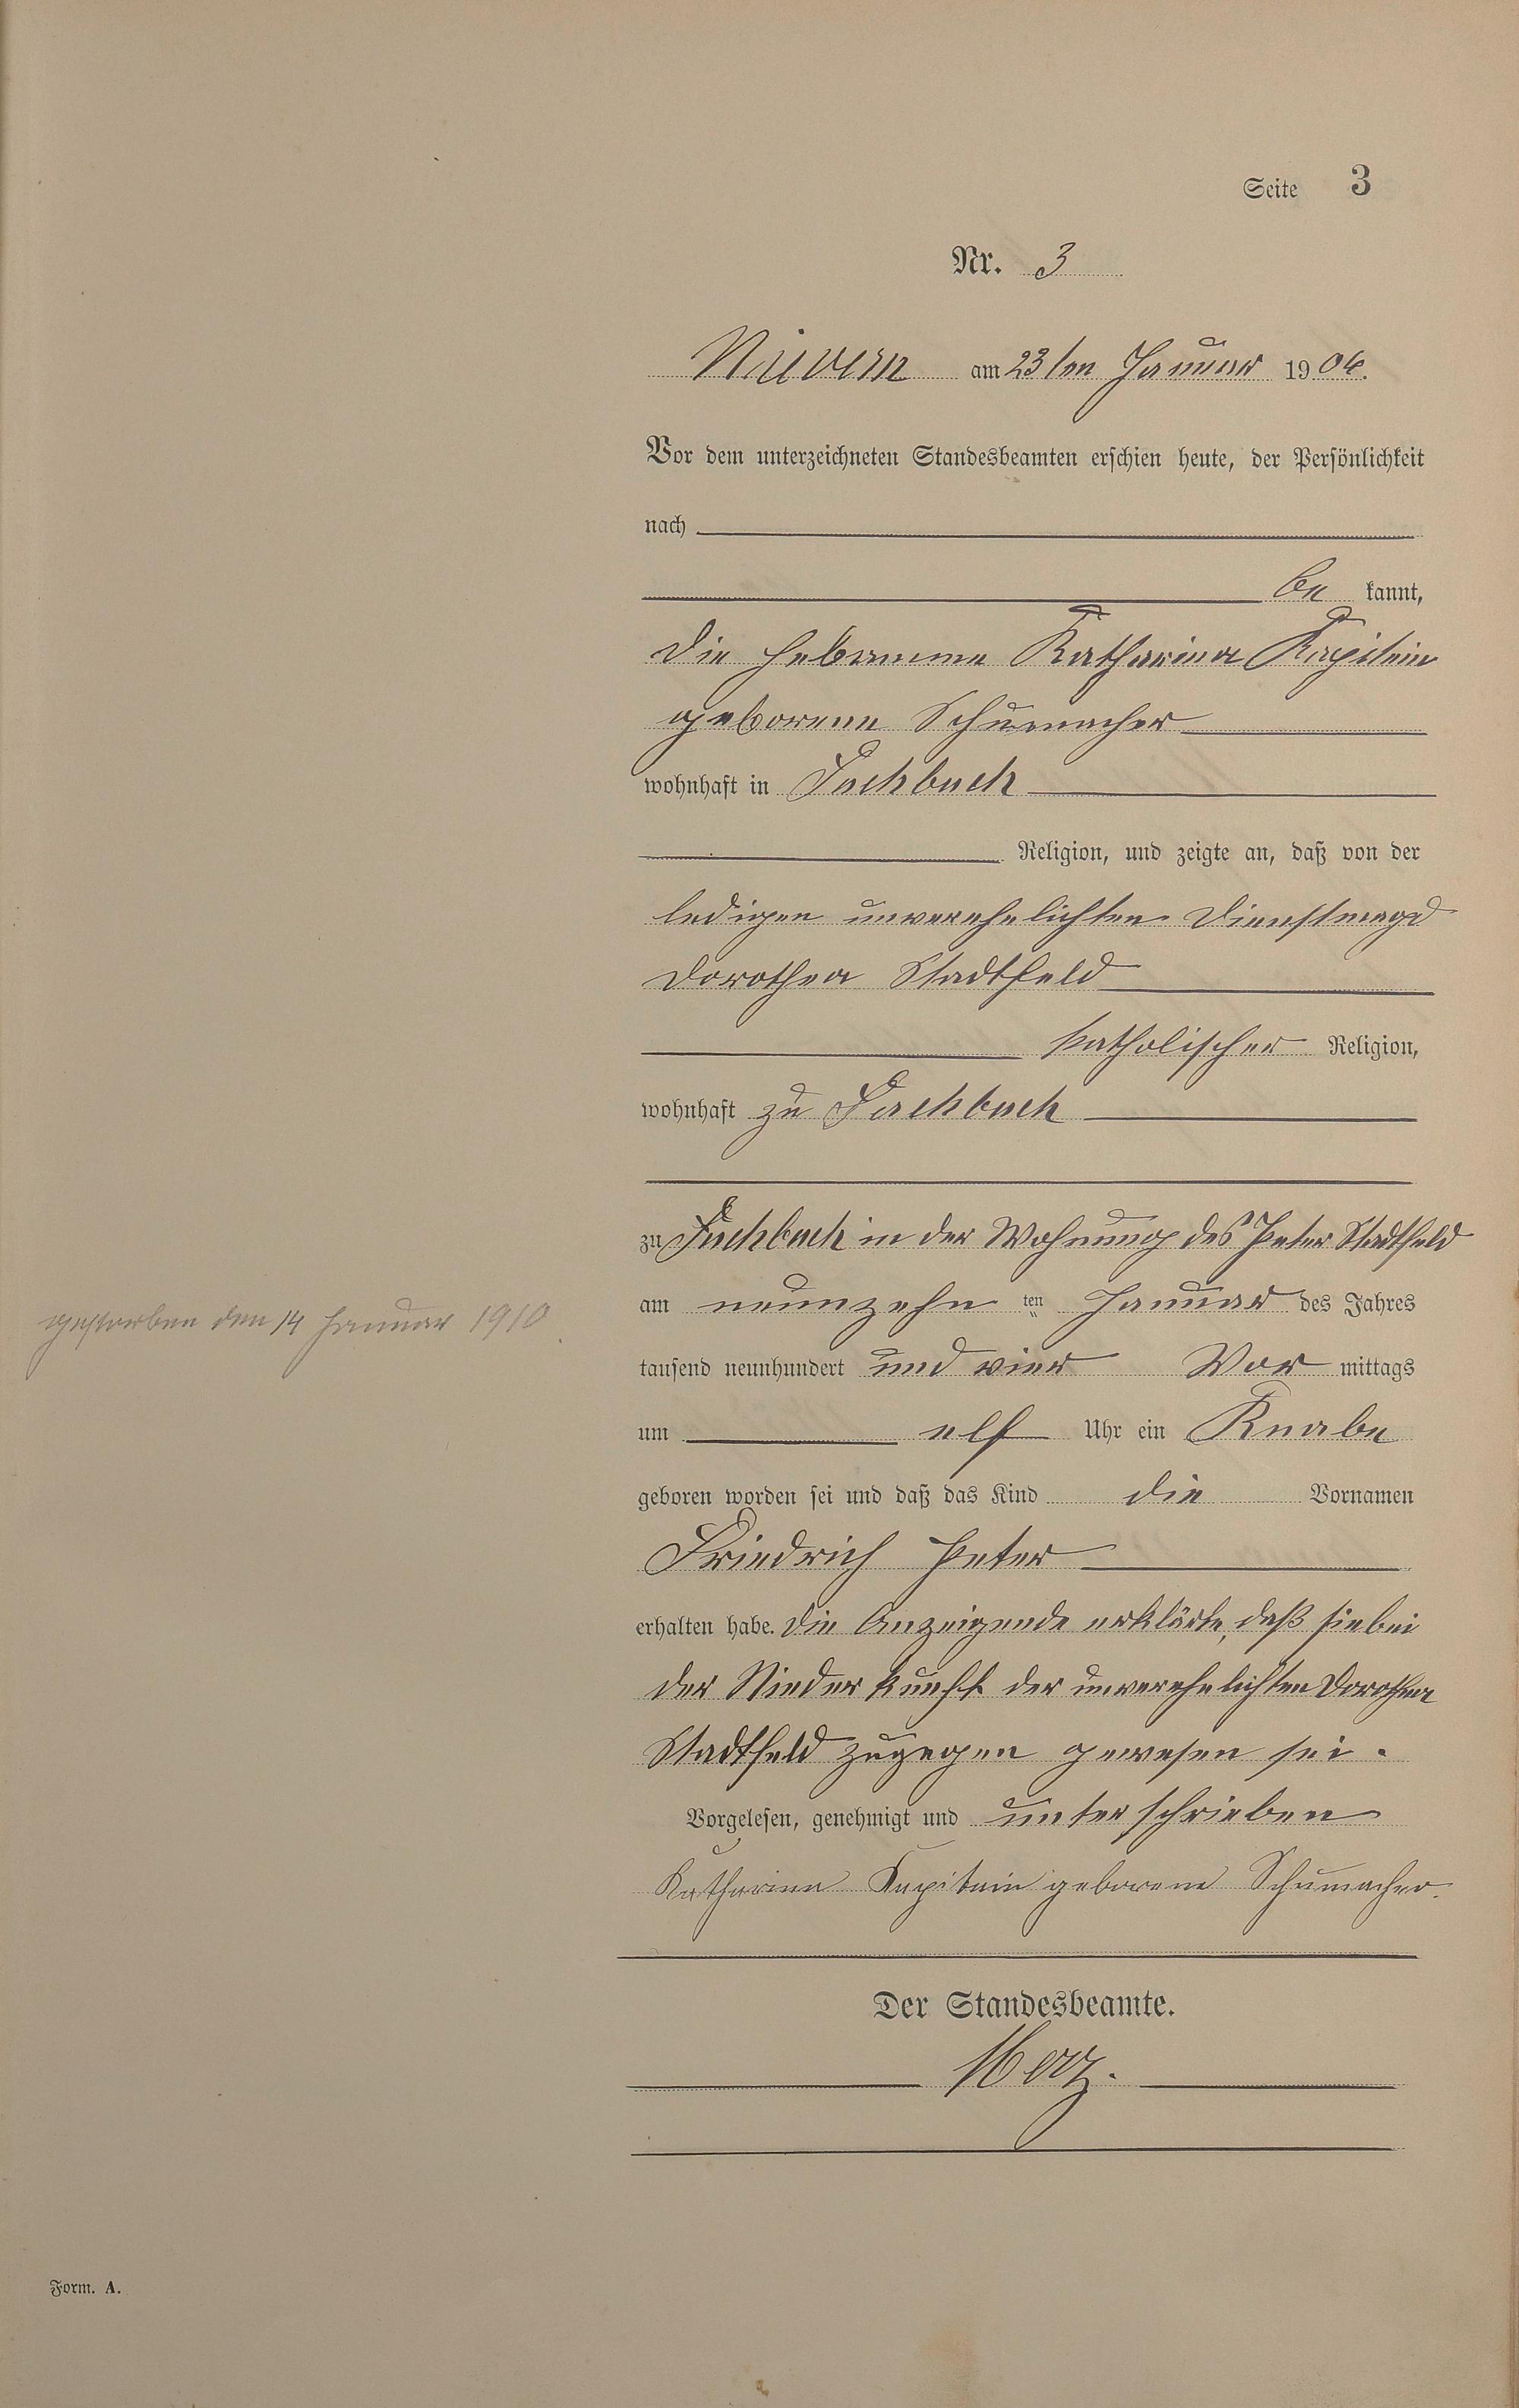 Seite 3
Nr. 3
Nievern am 23ten Januar 1904.
Vor dem unterzeichneten Standesbeamten erschien heute, der Persönlichkeit
nach
be kannt,
die Hebamme Katharina Kapitein
geborene Schumacher
wohnhaft in Fachbach
Religion, und zeigte an, daß von der
ledigen unverehelichten Dienstmagd
Dorothea Stadtfeld
katholischer Religion,
wohnhaft zu Fachbach
zu Fachbach in der Wohnung des Peter Stadtfeld
am neunzehn ten Januar des Jahres
tausend neunhundert und vier Vor mittags
um elf Uhr ein Knabe
geboren worden sei und daß das Kind die Vornamen
Friedrich Peter
erhalten habe. Die Anzeigende erklärte, daß sie bei
der Niederkunft der unverehelichten Dorothea
Stadtfeld zugegen gewesen sei.
Vorgelesen, genehmigt und unterschrieben
Katharina Kapitain geborene Schumacher.
Der Standesbeamte.
gestorben den 14 Januar 1910.
Form. A.